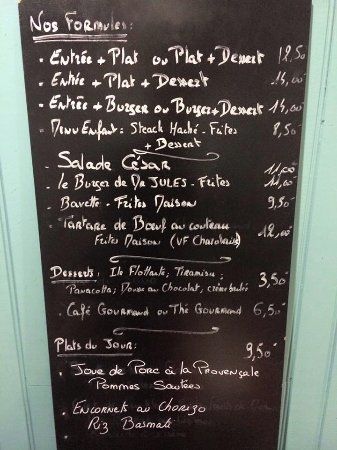 Nos Formules:
- Entrée + Plat ou Plat + Dessert 12,50
- Entrée + Plat + Dessert 14,00
- Entrée + Burger ou Burger + Dessert 14,00
- Menu Enfant: Steack Haché - Frites 8,50
+ Dessert
- Salade César 11,00
- le Burger de Dr JULES - Frites 11,00
- Bavette - Frites Maison 9,50
- Tartare de Boeuf au couteau
Frites Maison (VF Charolais) 12,00
Desserts: Ile Flottante; Tiramisu 3,50
Panacotta; Mousse au Chocolat, crème brulée
- Café Gourmand ou Thé Gourmand 6,50
Plats du Jour: 9,50
- Joue de Porc à la Provençale
Pommes Sautées
- Encornets au Chorizo
Riz Basmati